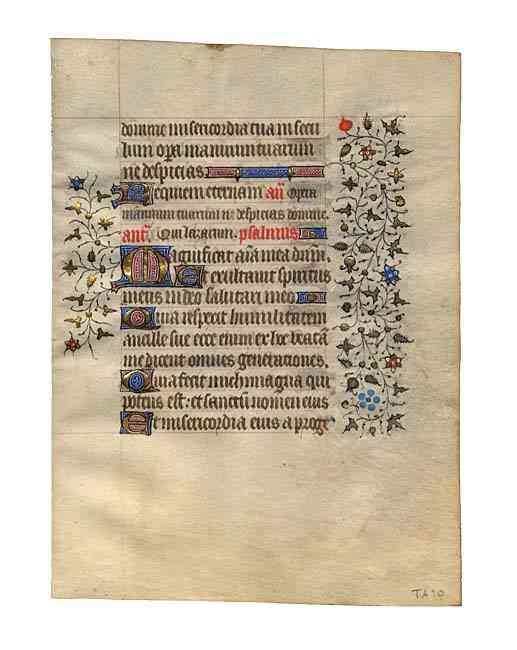 domine misericordia tua in secu
lum opera manuum tuarum
ne despicias
Requiem eternam añ Opera
manuum tuarum ne despicias domine.
ant. Qui lazarum. psalmus
Magnificat aĩa mea dnm.
Et exultavit spiritus
meus in deo salutari meo
Quia respexit humilitatem
ancille sue ecce enim ex hoc beata
me dicent omnes generationes.
Quia fecit michi magna qui
potens est: et sanctum nomen eius
Et misericordia eius a proge
TA 10